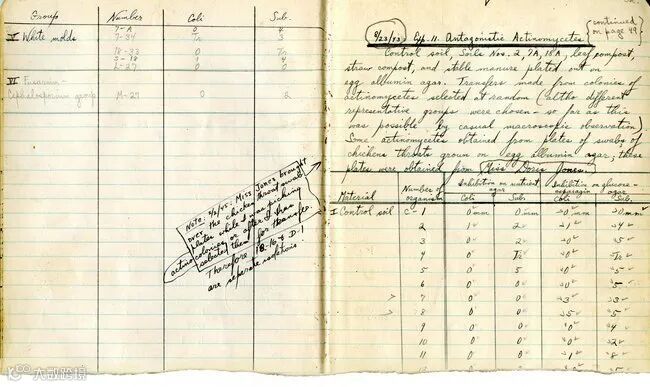 Group Number Coli Sub.
V White molds 7-A 0 4
7-34 Tr 3
18-33 0 Tr
5-18 1 4
L-27 0 0
VI Fusarium-
Cephalosporium group M-27 0 2
Note: Miss Jones brought
over the chicken throat swab
plates while I was picking
actino colonies or after I had
selected them for transfer.
Therefore 18-16 & D-1
are separate isolations.
8/23/43 Exp. 11. Antagonistic Actinomycetes
(continued
on page 49)
Control soil, Soils Nos. 2, 7A, 18A, leaf compost,
straw compost, and stable manure plated out on
egg albumin agar. Transfers made from colonies of
actinomycetes selected at random (altho different
representative groups were chosen - so far as this
was possible by casual macroscopic observation).
Some actinomycetes obtained from plates of swabs of
chickens throats grown on egg albumin agar; these
plates were obtained from Miss Doris Jones.
Material Number of organism Inhibition on nutrient agar Inhibition on glucose-asparagin agar
Coli Sub. Coli Sub.
I Control soil C-1 0 mm 0 mm 0 mm 0 mm
2 1 2 1 4
3 0 2 0 5
4 0 Tr 0 Tr
5 5 5 0 5
6 0 0 0 5
7 0 0 3 3
8 0 0 5 5
9 0 0 0 4
10 0 0 0 2
11 0 0 1 8